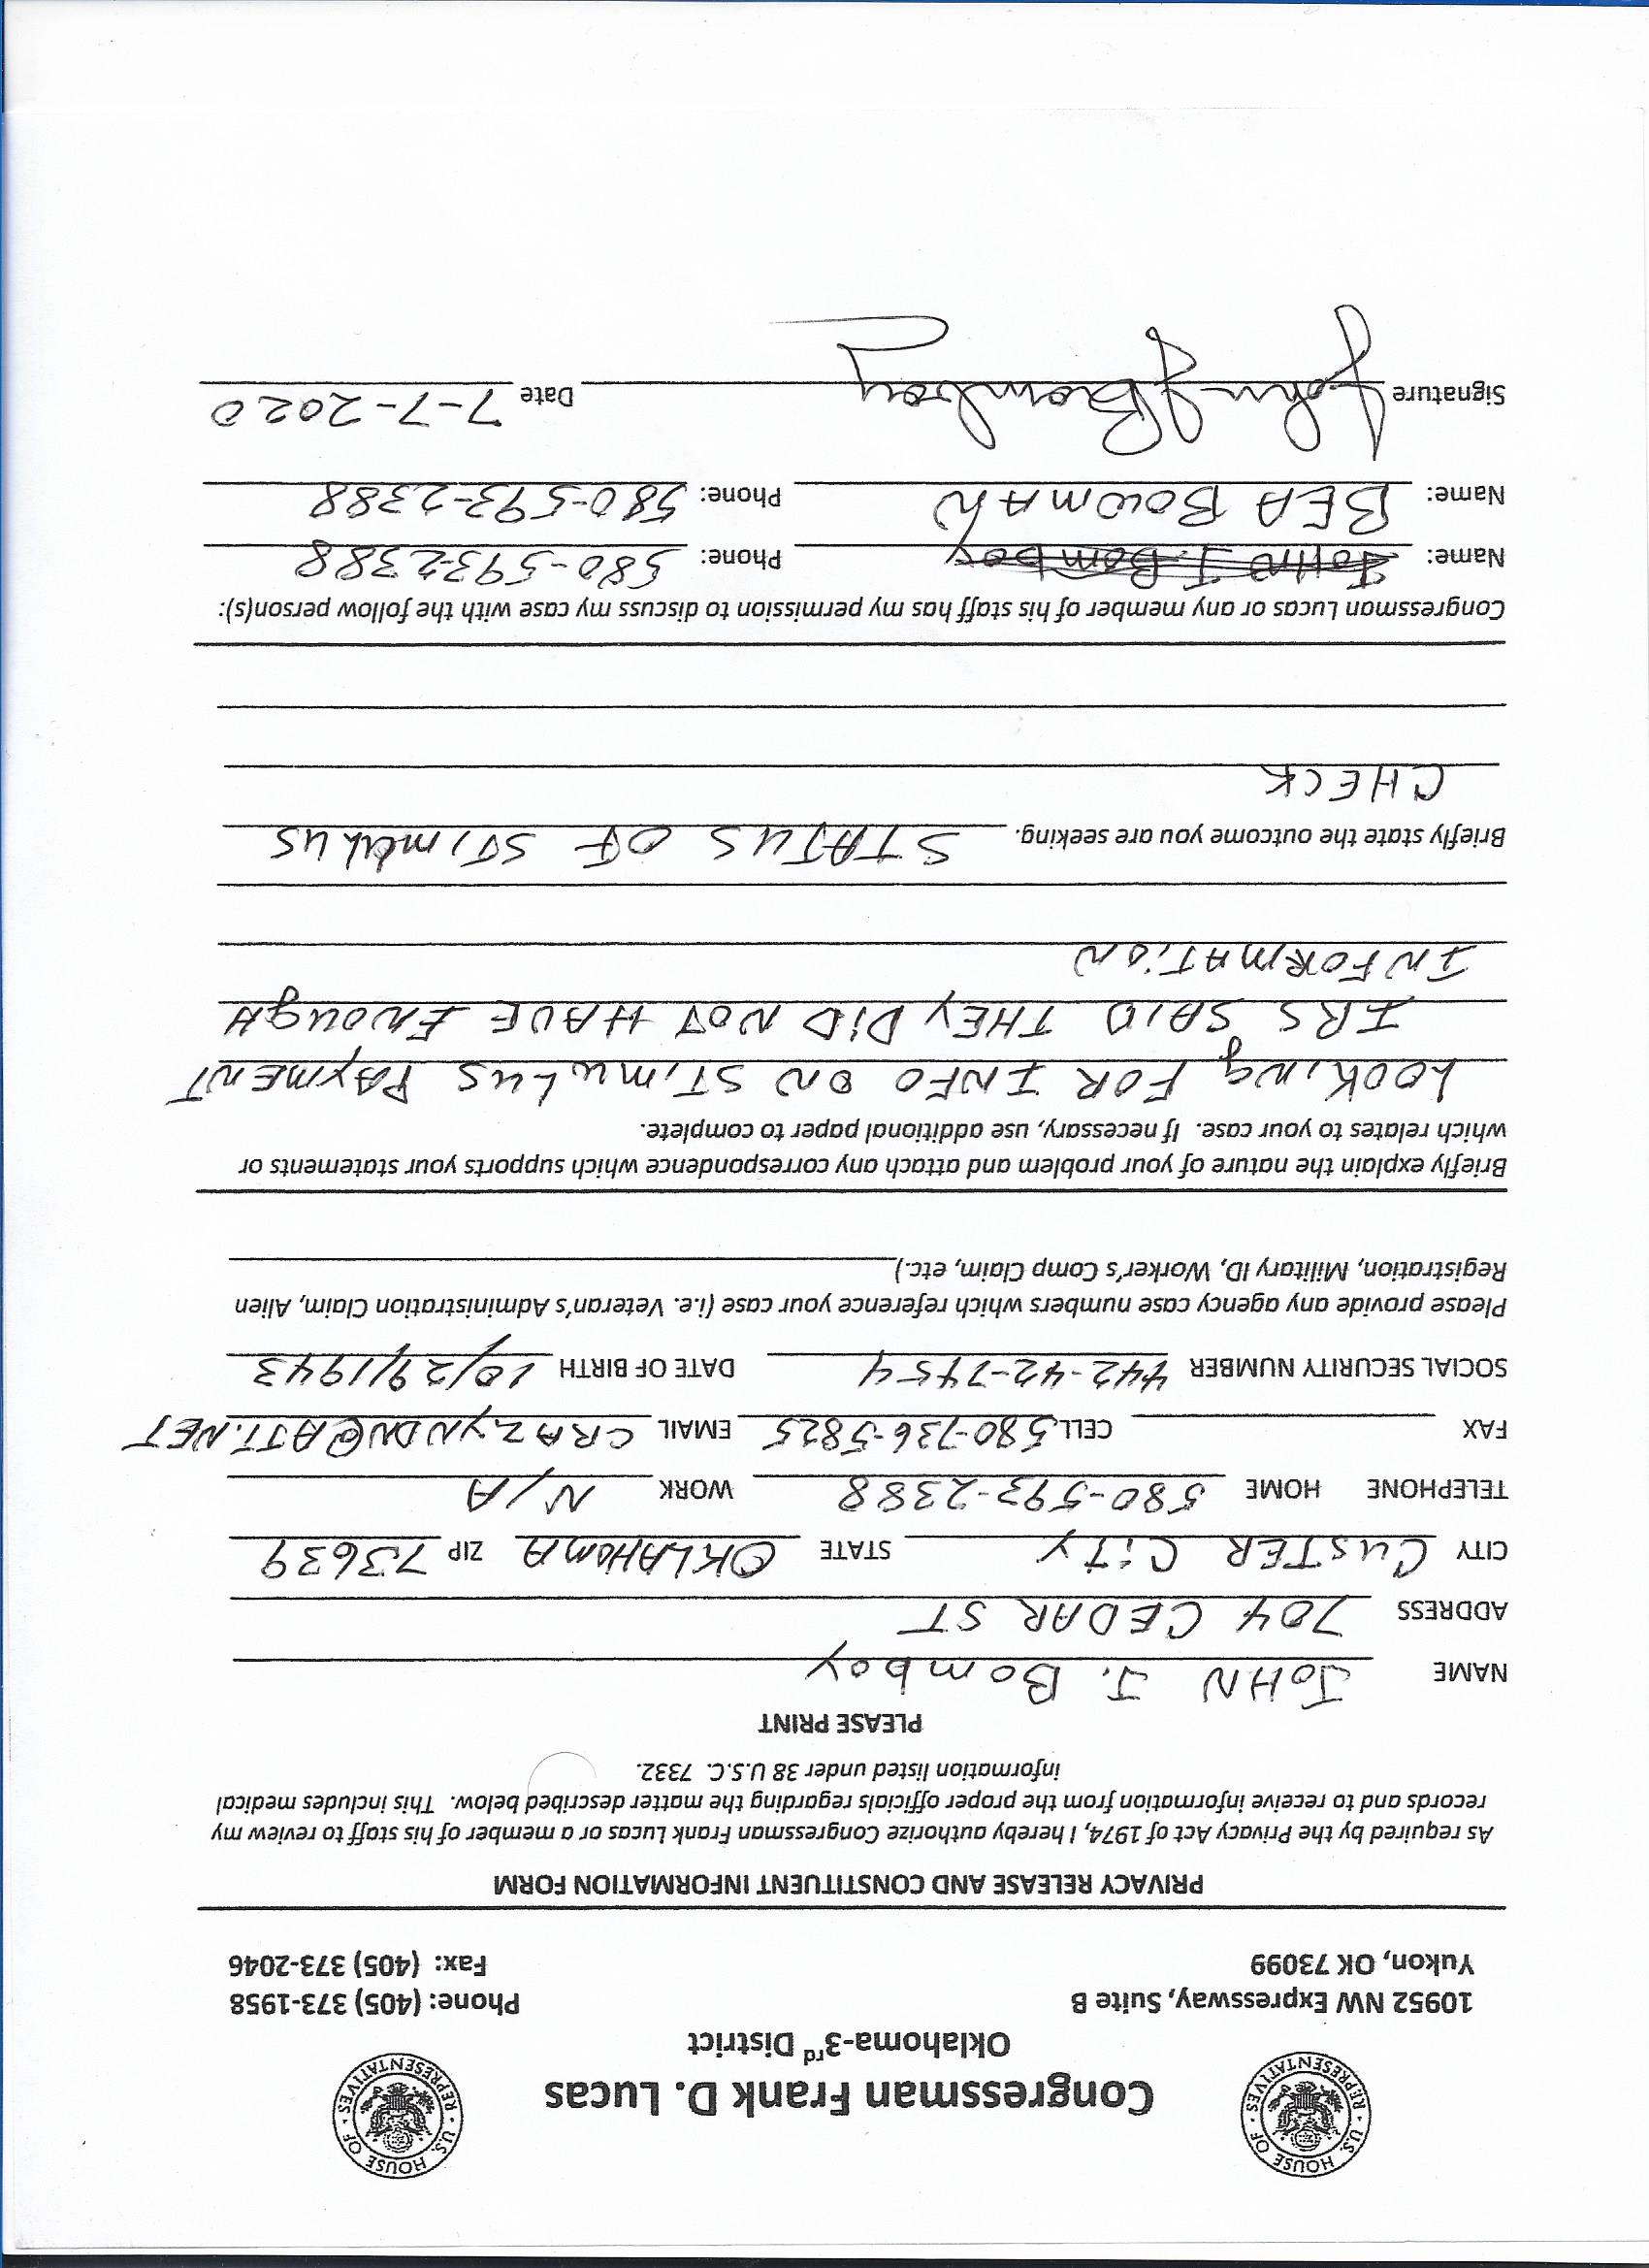 U.S. HOUSE OF REPRESENTATIVES
Congressman Frank D. Lucas
U.S. HOUSE OF REPRESENTATIVES
Oklahoma-3rd District
10952 NW Expressway, Suite B Phone: (405) 373-1958
Yukon, OK 73099 Fax: (405) 373-2046
PRIVACY RELEASE AND CONSTITUENT INFORMATION FORM
As required by the Privacy Act of 1974, I hereby authorize Congressman Frank Lucas or a member of his staff to review my
records and to receive information from the proper officials regarding the matter described below. This includes medical
information listed under 38 U.S.C. 7332.
PLEASE PRINT
NAME JOHN J. Bomboy
ADDRESS 704 CEDAR ST
CITY CUSTER CITY STATE OKLAHOMA ZIP 73639
TELEPHONE HOME 580-593-2388 WORK N/A
FAX CELL 580-736-5825 EMAIL CRAZYNDN@ATT.NET
SOCIAL SECURITY NUMBER DATE OF BIRTH 10/29/1943
Please provide any agency case numbers which reference your case (i.e. Veteran's Administration Claim, Alien
Registration, Military ID, Worker's Comp Claim, etc.)
Briefly explain the nature of your problem and attach any correspondence which supports your statements or
which relates to your case. If necessary, use additional paper to complete.
LOOKING FOR INFO ON STIMULUS PAYMENT
IRS SAID THEY DID NOT HAVE ENOUGH
INFORMATION
Briefly state the outcome you are seeking. STATUS OF STIMULUS
CHECK
Congressman Lucas or any member of his staff has my permission to discuss my case with the follow person(s):
Name: JOHN J Bomboy Phone: 580-593-2388
Name: BEA BOWMAN Phone: 580-593-2388
Signature John J Bomboy Date 7-7-2020